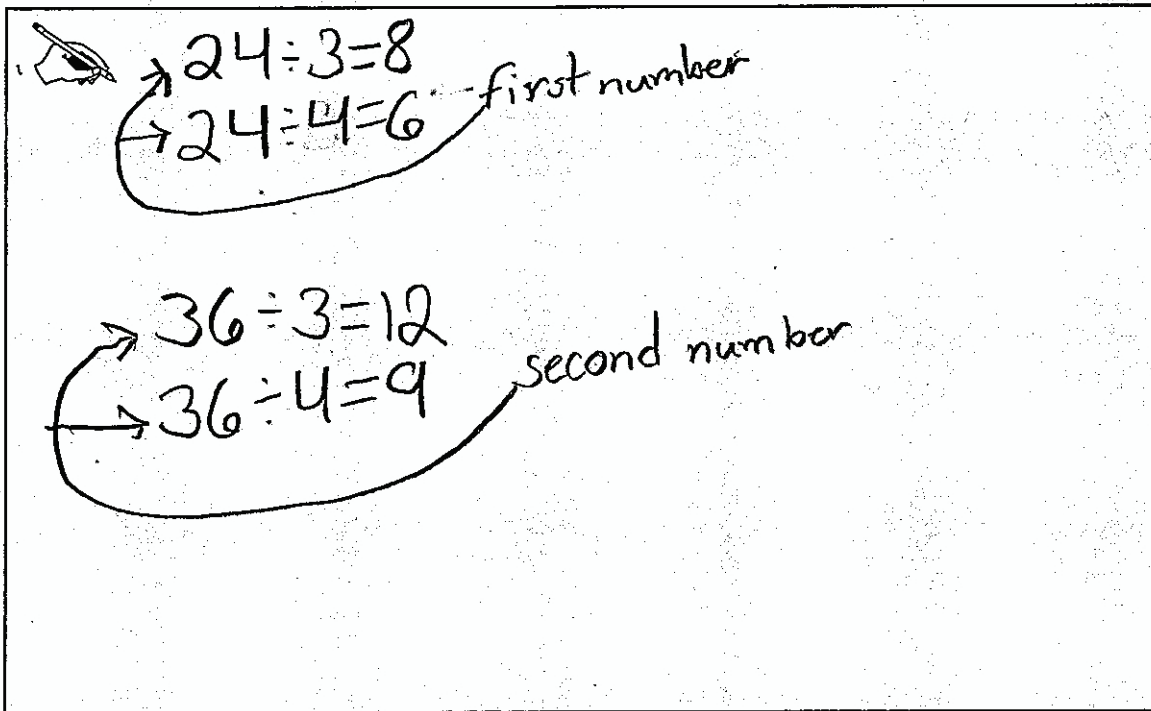 24÷3=8
24÷4=6 first number
36÷3=12
36÷4=9 second number